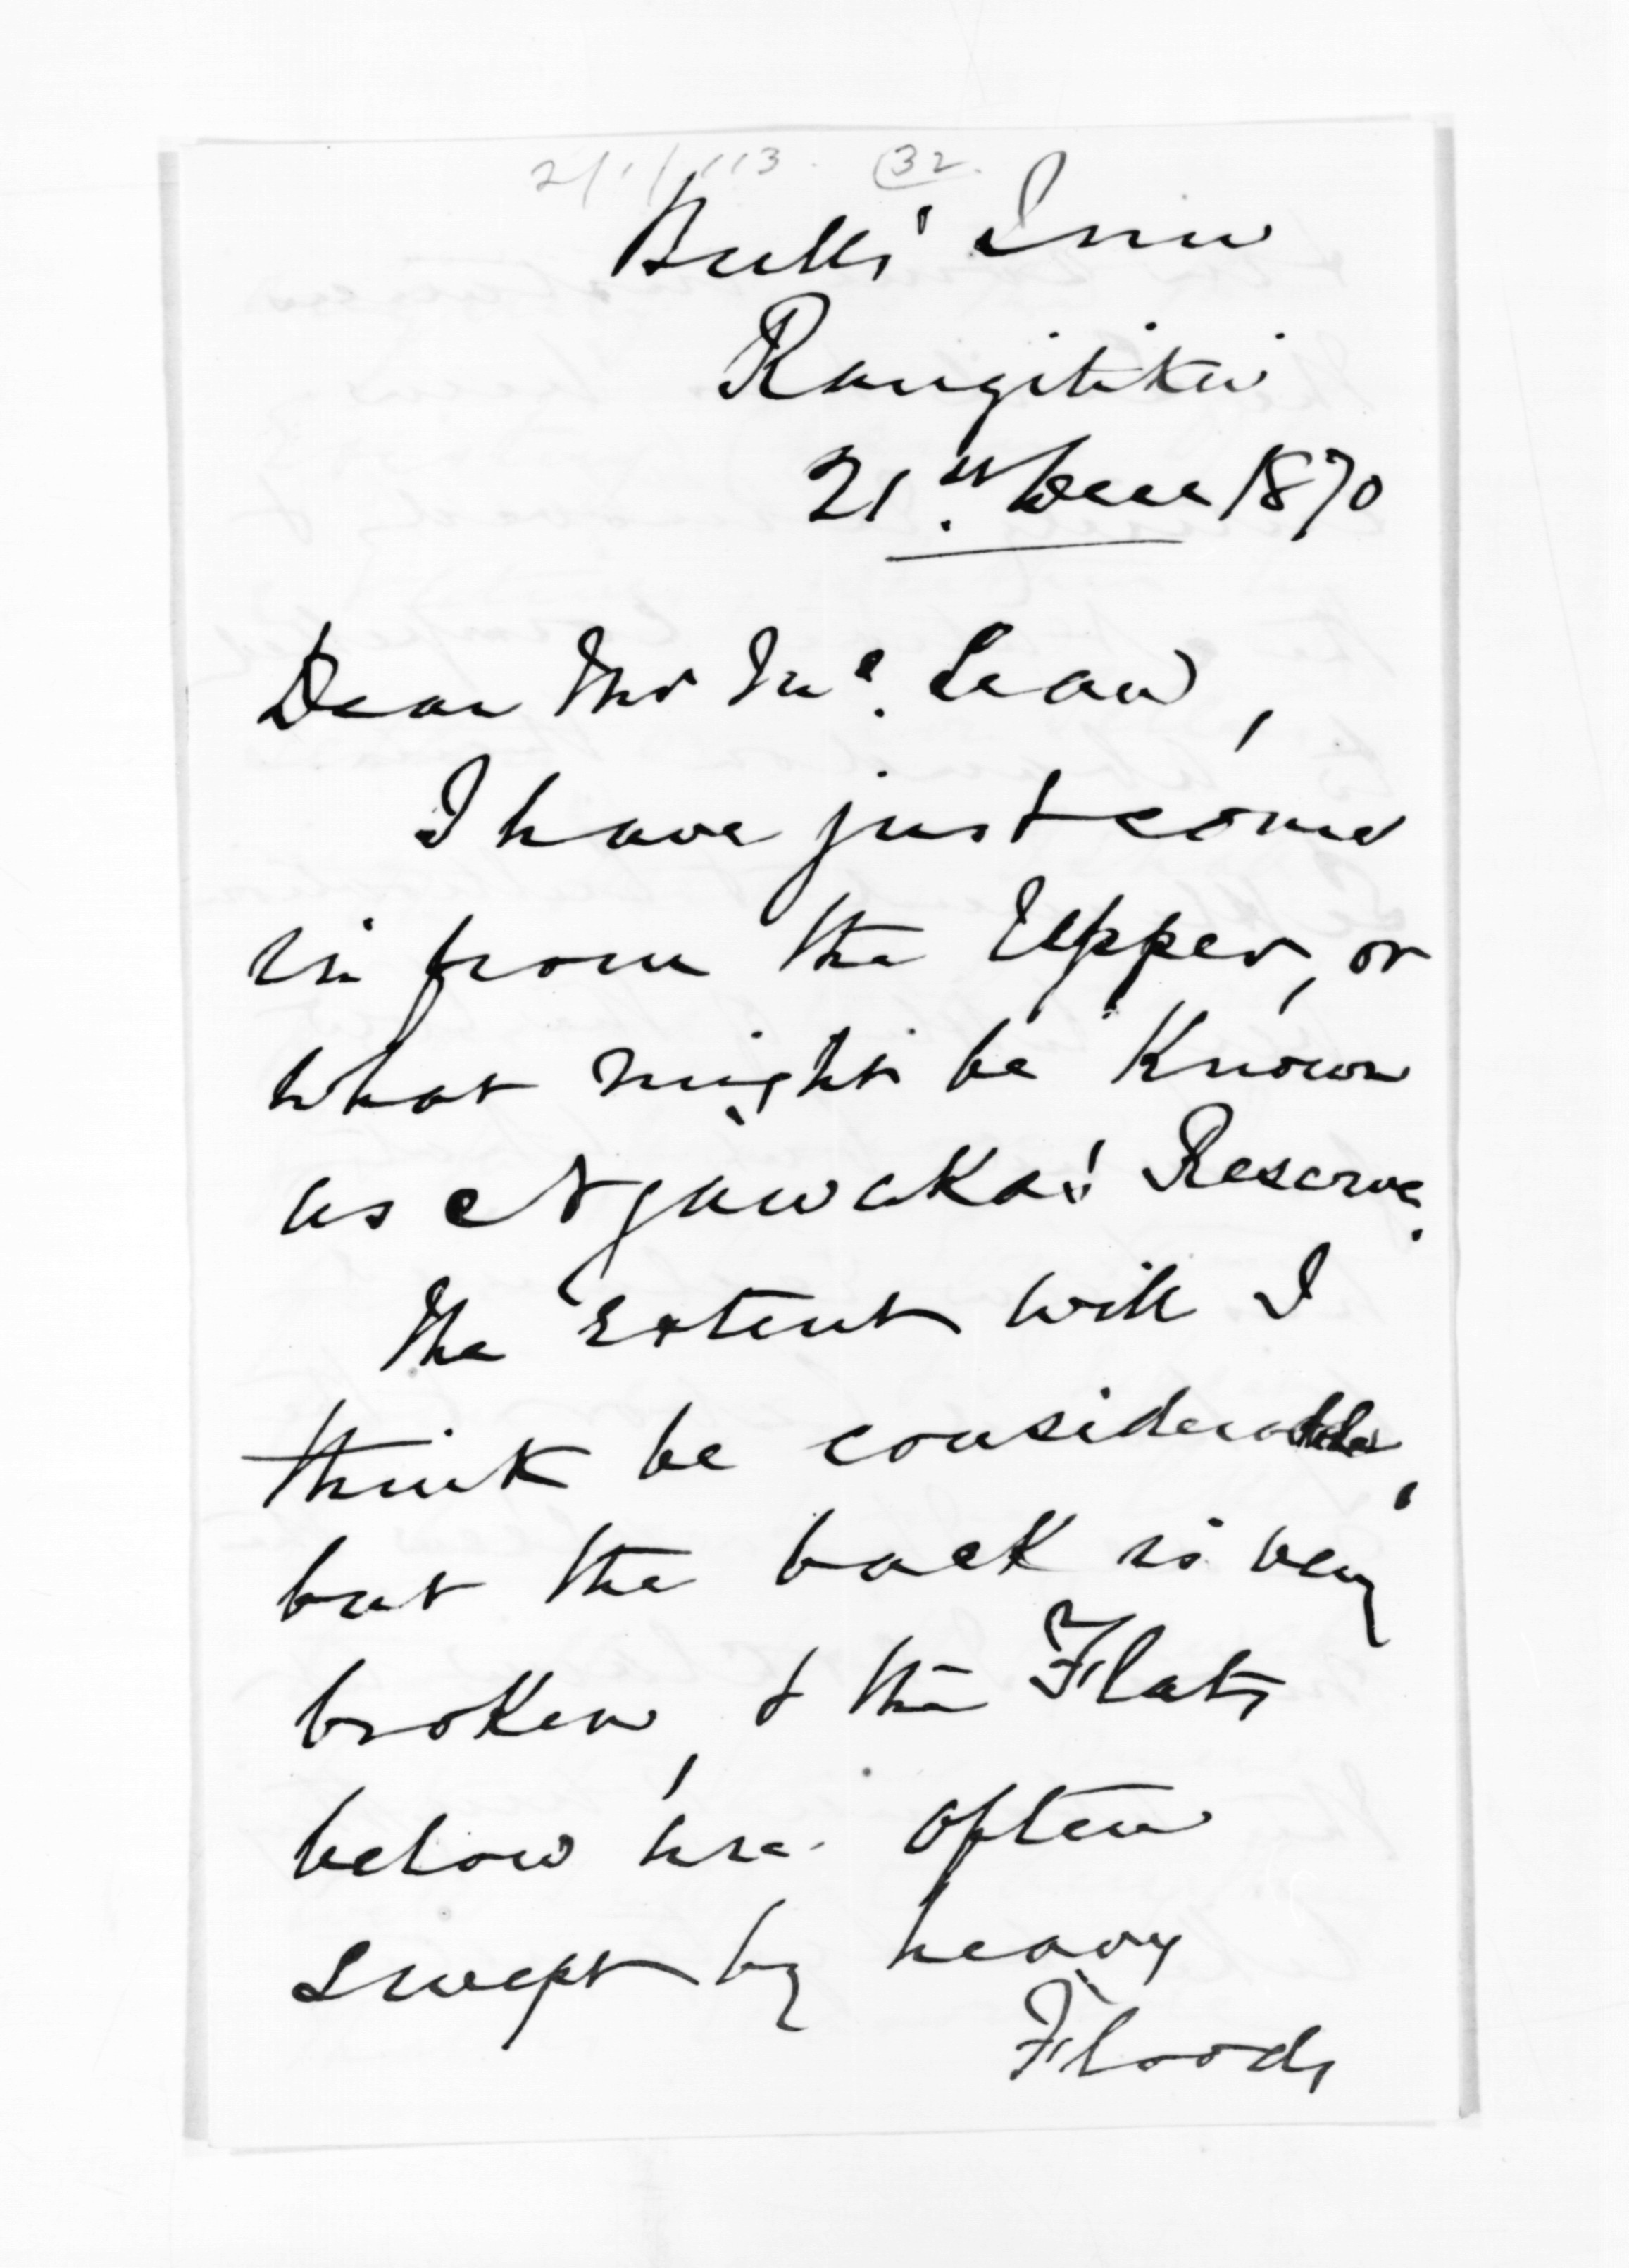 Bulls' Inn
Rangitikei
21.st Decr 1870
Dear Mr McLean,
I have just come
in from the Upper, or
what might be known
as Ngawaka's Reserve.
The extent will I
think be considerable,
but the back is very
broken, & the Flats
below are often
swept by heavy
Floods